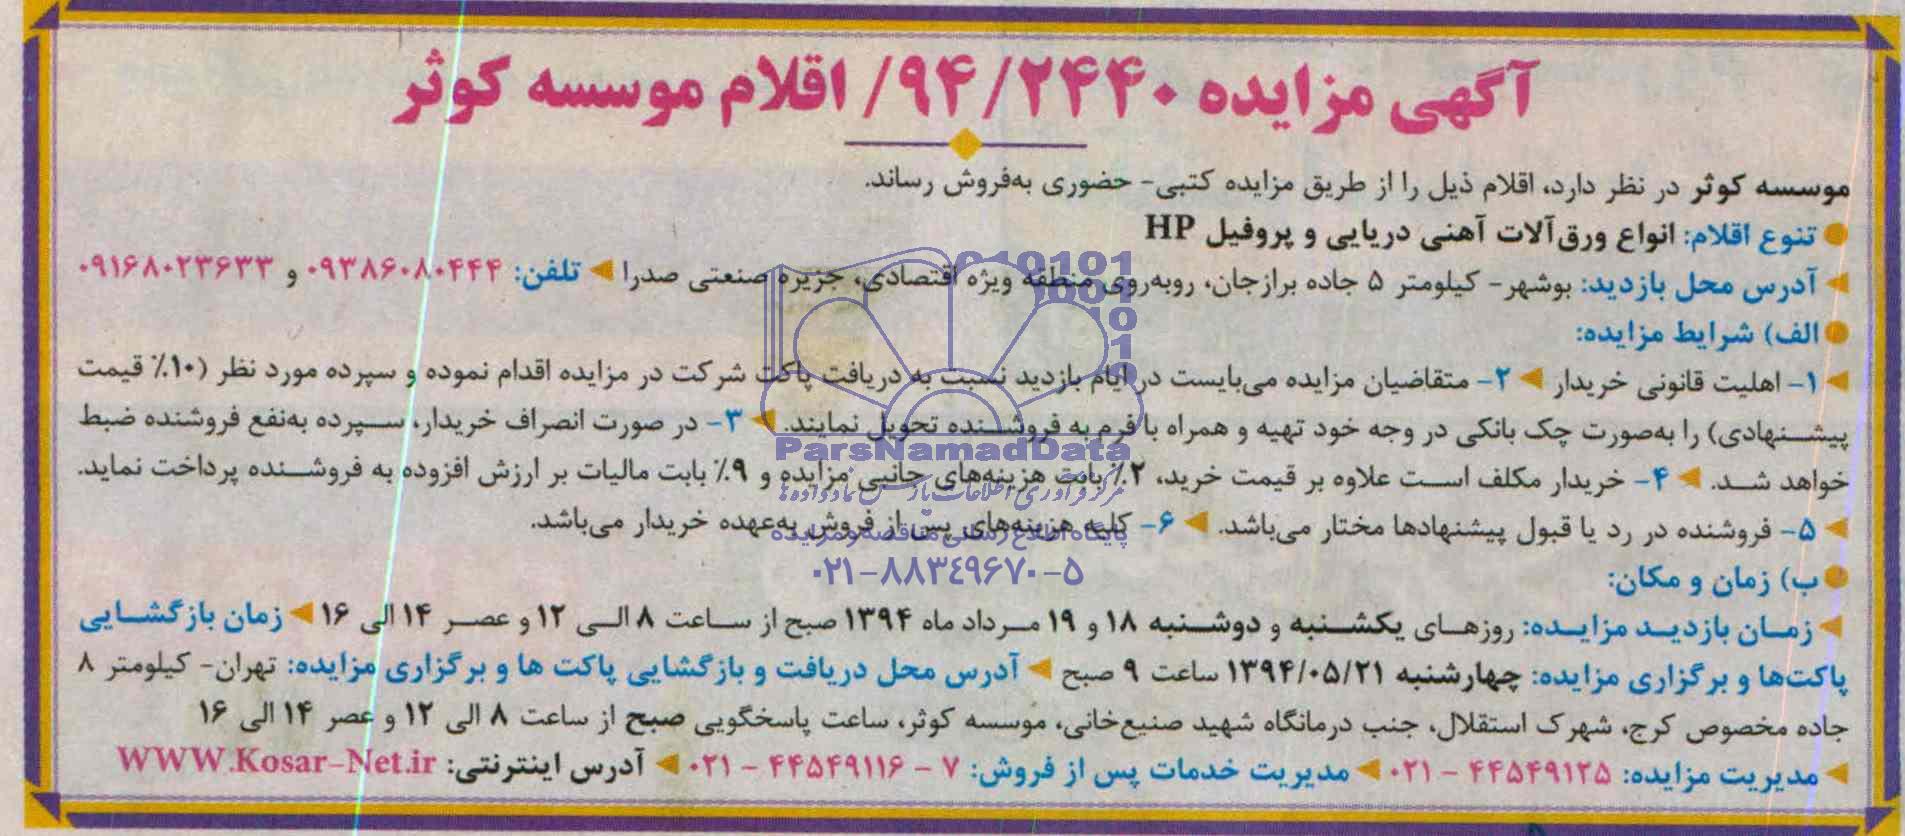 آگهی مزایده ۹۴/۲۴۴۰/ اقلام موسسه کوثر
موسسه کوثر در نظر دارد، اقلام ذیل را از طریق مزایده کتبی- حضوری به‌فروش رساند.
تنوع اقلام: انواع ورق‌آلات آهنی دریایی و پروفیل HP
آدرس محل بازدید: بوشهر- کیلومتر ۵ جاده برازجان، روبه‌روی منطقه ویژه اقتصادی، جزیره صنعتی صدرا ◄ تلفن: ۰۹۳۸۶۰۸۰۴۴۴ و ۰۹۱۶۸۰۲۳۶۳۳
الف) شرایط مزایده:
◄ ۱- اهلیت قانونی خریدار ◄ ۲- متقاضیان مزایده می‌بایست در ایام بازدید نسبت به دریافت پاکت شرکت در مزایده اقدام نموده و سپرده مورد نظر (۱۰٪ قیمت
پیشنهادی) را به‌صورت چک بانکی در وجه خود تهیه و همراه با فرم به فروشنده تحویل نمایند. ◄ ۳- در صورت انصراف خریدار، سپرده به‌نفع فروشنده ضبط
خواهد شد. ◄ ۴- خریدار مکلف است علاوه بر قیمت خرید، ۲٪ بابت هزینه‌های جانبی مزایده و ۹٪ بابت مالیات بر ارزش افزوده به فروشنده پرداخت نماید.
◄ ۵- فروشنده در رد یا قبول پیشنهادها مختار می‌باشد. ◄ ۶- کلیه هزینه‌های پس از فروش به‌عهده خریدار می‌باشد.
ب) زمان و مکان:
◄ زمان بازدید مزایده: روزهای یکشنبه و دوشنبه ۱۸ و ۱۹ مرداد ماه ۱۳۹۴ صبح از ساعت ۸ الی ۱۲ و عصر ۱۴ الی ۱۶ ◄ زمان بازگشایی
پاکت‌ها و برگزاری مزایده: چهارشنبه ۱۳۹۴/۰۵/۲۱ ساعت ۹ صبح ◄ آدرس محل دریافت و بازگشایی پاکت ها و برگزاری مزایده: تهران- کیلومتر ۸
جاده مخصوص کرج، شهرک استقلال، جنب درمانگاه شهید صنیع‌خانی، موسسه کوثر، ساعت پاسخگویی صبح از ساعت ۸ الی ۱۲ و عصر ۱۴ الی ۱۶
◄ مدیریت مزایده: ۴۴۵۴۹۱۲۵ - ۰۲۱ ◄ مدیریت خدمات پس از فروش: ۷ - ۴۴۵۴۹۱۱۶ - ۰۲۱ ◄ آدرس اینترنتی: WWW.Kosar-Net.ir
ParsNamadData
مرکز فرآوری اطلاعات پارس نماد داده ها
پایگاه اطلاع رسانی مناقصه و مزایده
۰۲۱-۸۸۳۴۹۶۷۰-۵